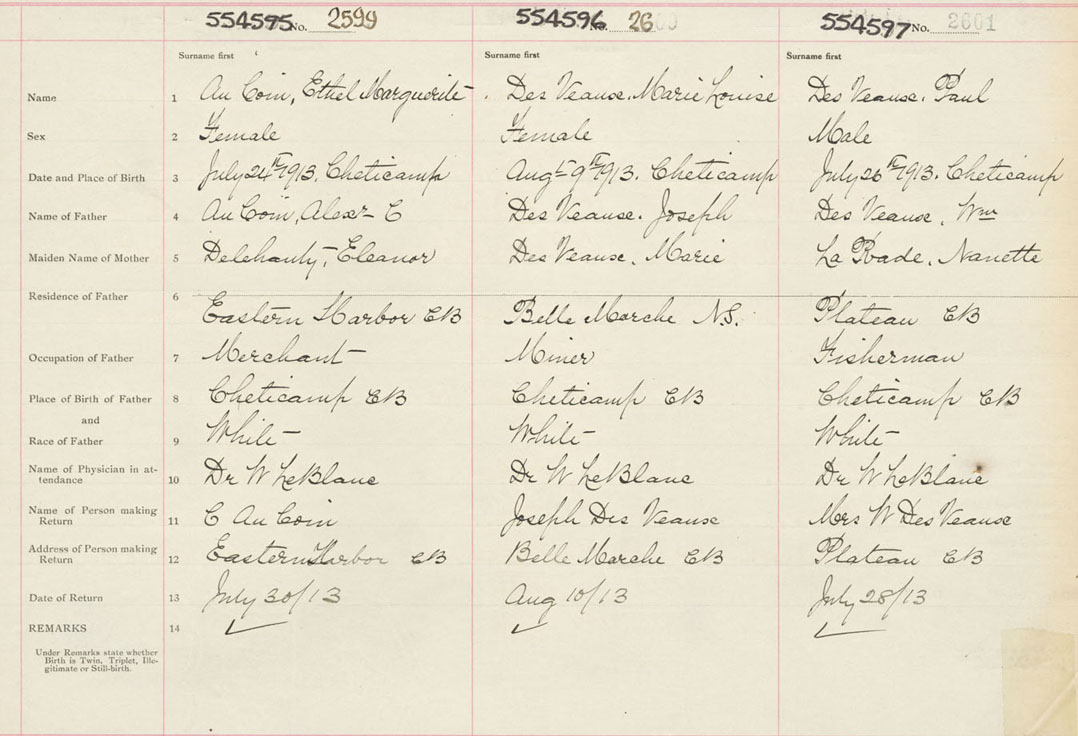 554595 No. 2599 554596 No. 26 554597 No. 2601
Surname first Surname first Surname first
Name 1 Au Coin, Ethel Marguerite Des Veause, Marie Louise Des Veause, Paul
Sex 2 Female Female Male
Date and Place of Birth 3 July 24th 1913. Cheticamp Augt 9th 1913. Cheticamp July 26th 1913. Cheticamp
Name of Father 4 Au Coin, Alexr C Des Veause. Joseph Des Veause, Wm
Maiden Name of Mother 5 Delehanty, Eleanor Des Veause, Marie La Rade, Nanette
Residence of Father 6 Eastern Harbor CB Belle Marche N.S. Plateau CB
Occupation of Father 7 Merchant Miner Fisherman
Place of Birth of Father 8 Cheticamp CB Cheticamp CB Cheticamp CB
and
Race of Father 9 White White White
Name of Physician in at-
tendance 10 Dr W LeBlanc Dr W LeBlanc Dr W LeBlanc
Name of Person making
Return 11 C Au Coin Joseph Des Veause Mrs W Des Veause
Address of Person making
Return 12 Eastern Harbor CB Belle Marche CB Plateau CB
Date of Return 13 July 30/13 Aug 10/13 July 28/13
REMARKS 14
Under Remarks state whether
Birth is Twin, Triplet, Ille-
gitimate or Still-birth.